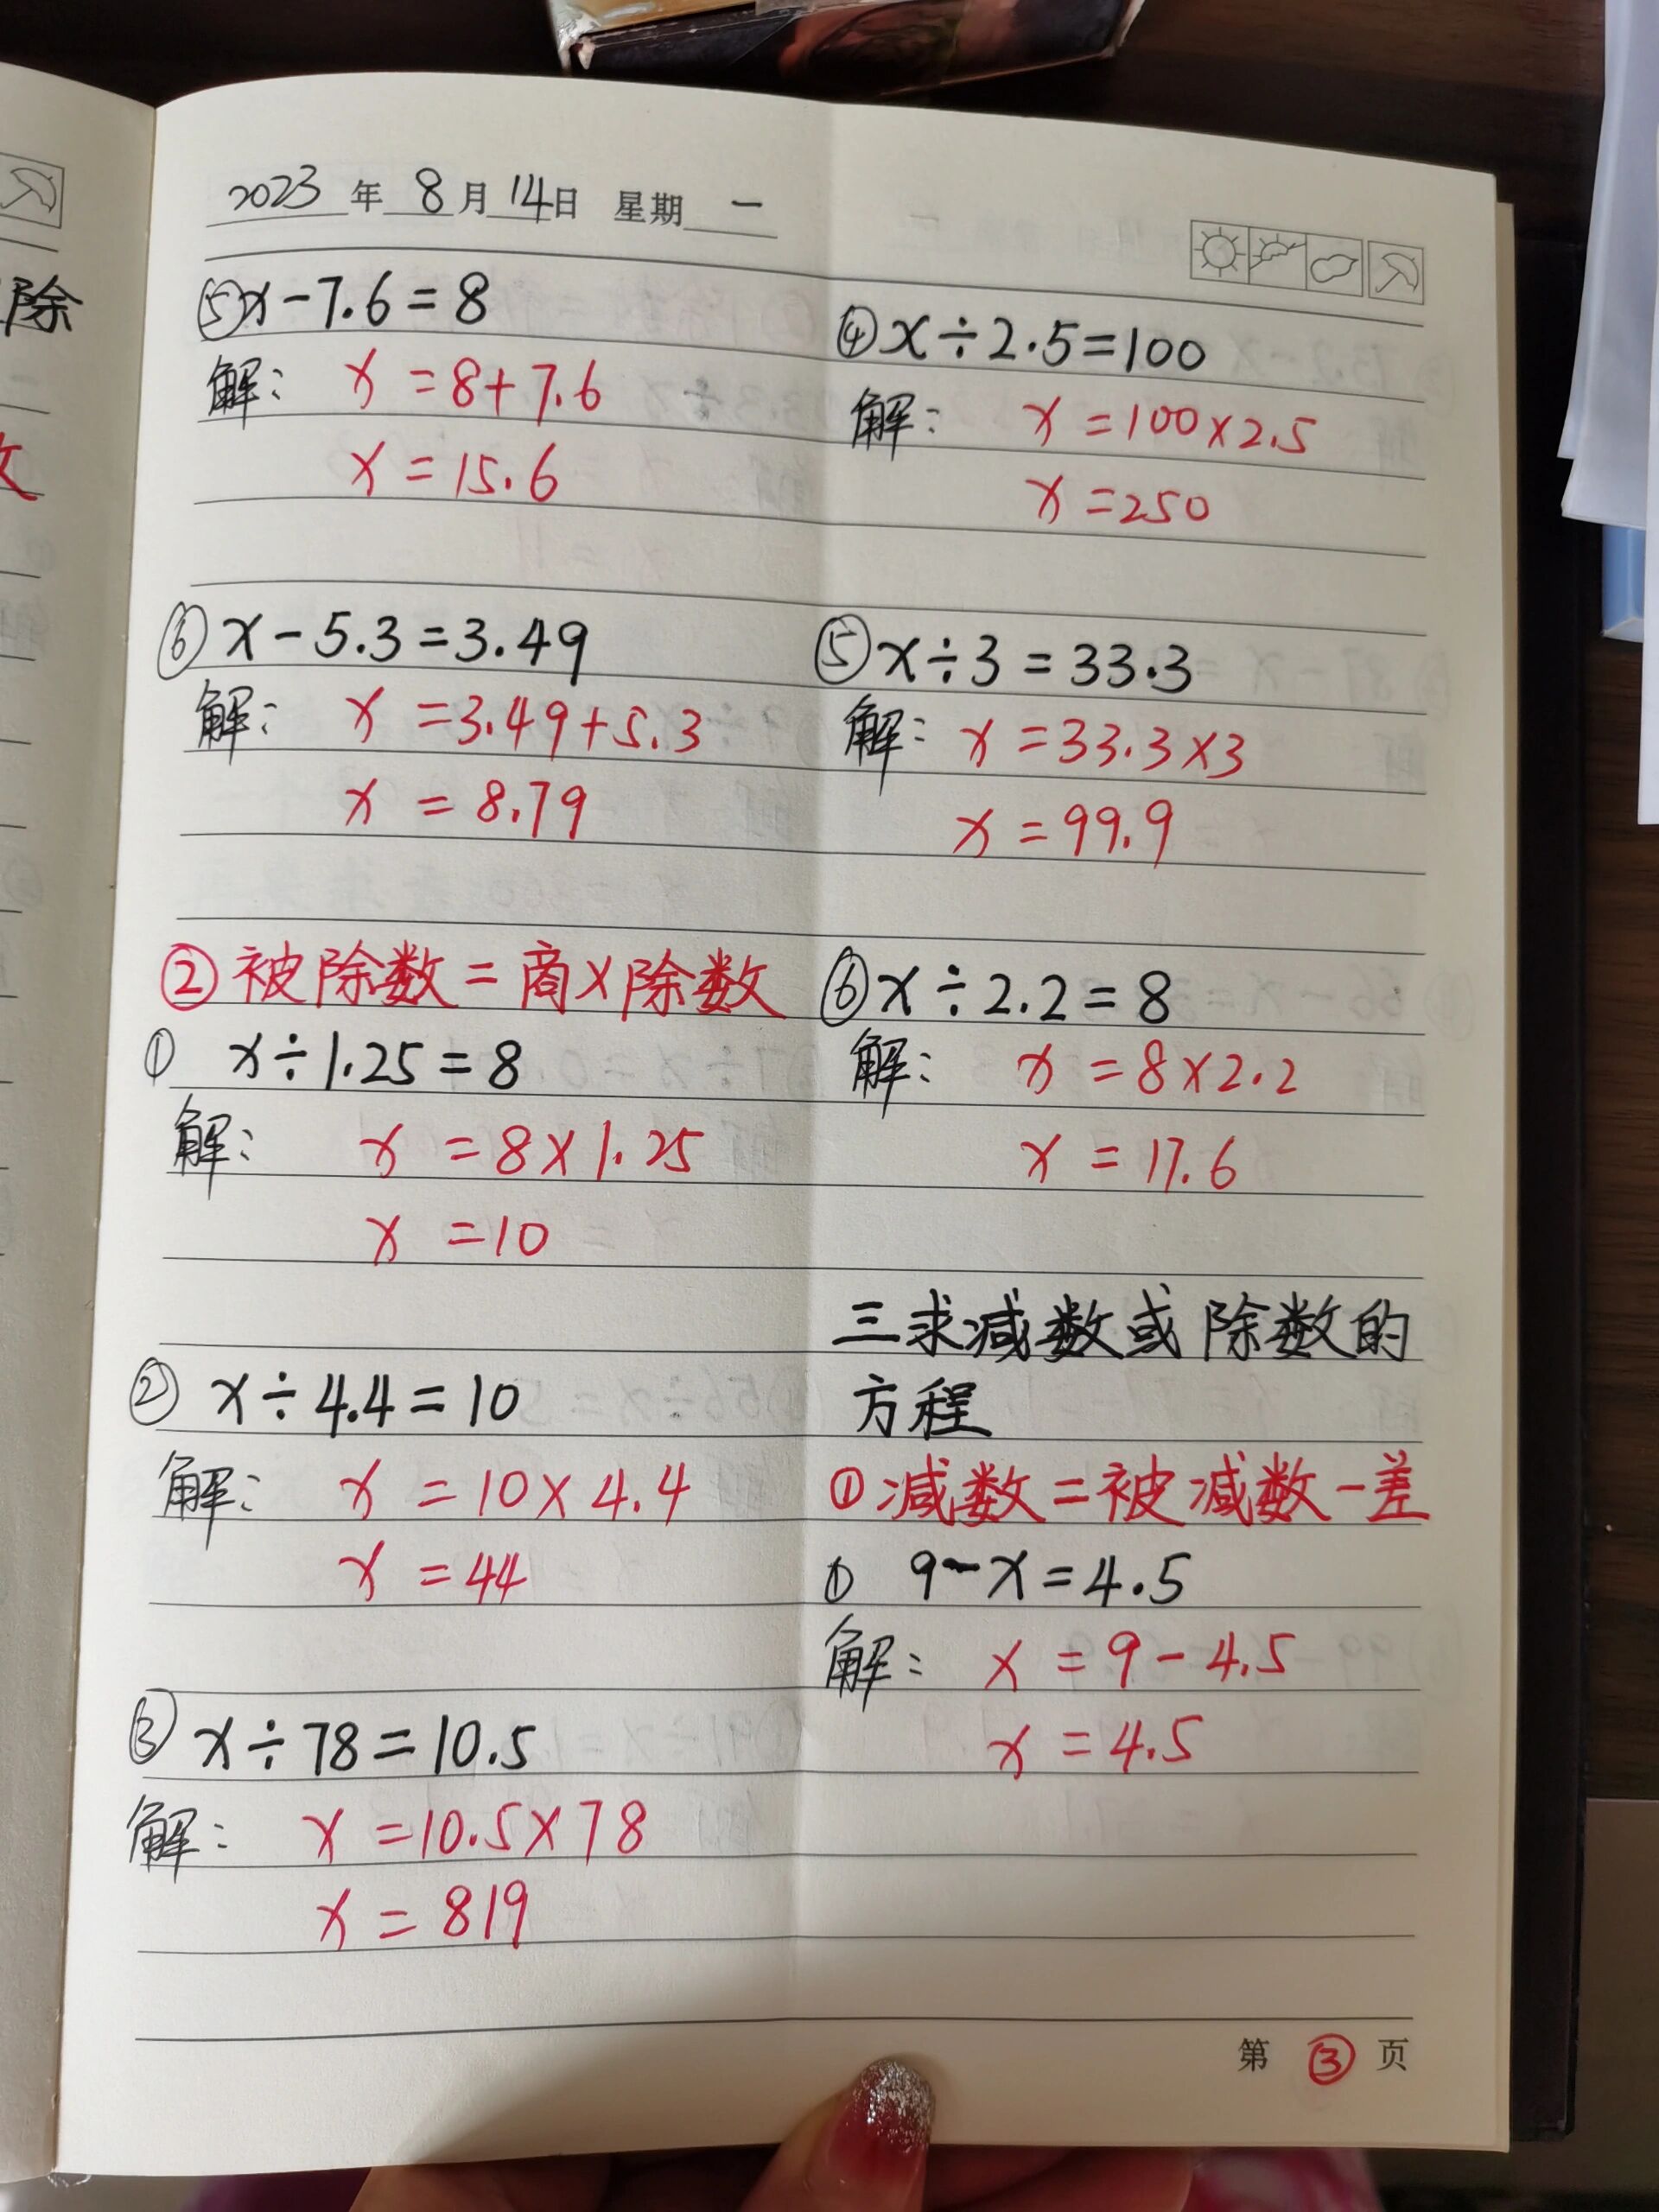 除
数
2023年8月14日 星期一
⑤x-7.6=8
解: x=8+7.6
x=15.6
⑥x-5.3=3.49
解: x=3.49+5.3
x=8.79
②被除数=商×除数
① x÷1.25=8
解: x=8×1.25
x=10
② x÷4.4=10
解: x=10×4.4
x=44
③ x÷78=10.5
解: x=10.5×78
x=819
④x÷2.5=100
解: x=100×2.5
x=250
⑤x÷3=33.3
解: x=33.3×3
x=99.9
⑥x÷2.2=8
解: x=8×2.2
x=17.6
三求减数或除数的
方程
①减数=被减数-差
① 9-x=4.5
解: x=9-4.5
x=4.5
第③页